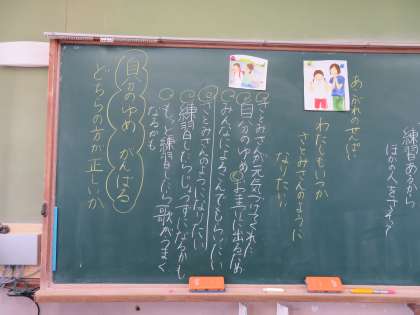 練習あるから
ほかの人をさそって
あこがれのせんぱい
わたしもいつか
さとみさんのように
なりたい
さとみさんが元気づけてくれた
自分のゆめ お芝に出るため
みんなによろこんでもらいたい
さとみさんのようになりたい
練習したらじょうずになるかも
もっと練習したら歌がうまく
なるかも
自分のゆめ がんばる
どちらの方が正しいか